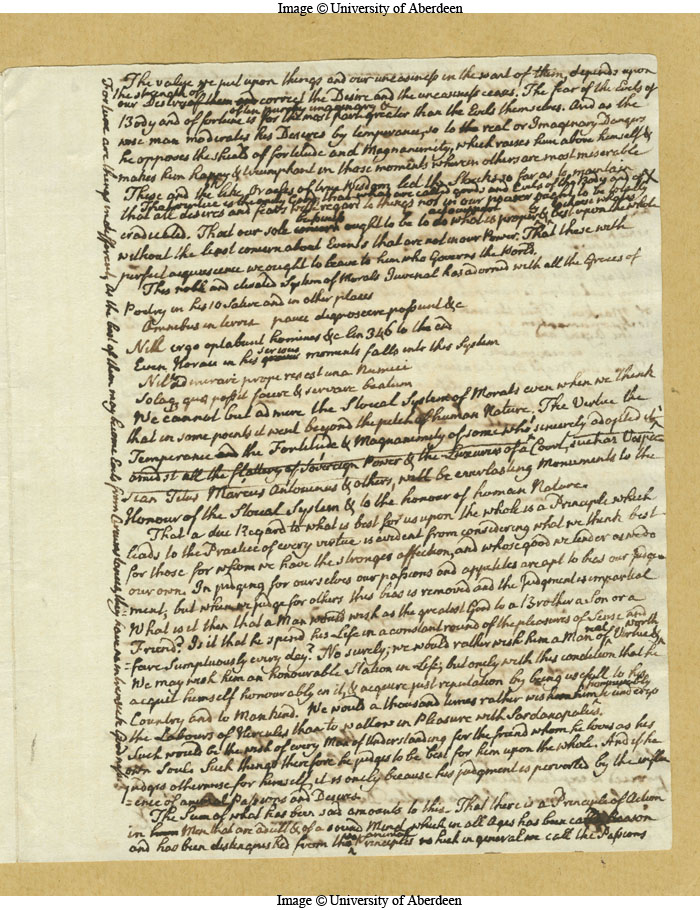 Image © University of Aberdeen
The value we put upon things and our uneasiness in the want of them, depends upon
the strength of
our Desires of them and correct the Desire and the uneasiness ceases. The fear of the Evils of
often purely imaginary &
Body and of fortune is for the most part greater than the Evils themselves. And as the
wise man moderates his Desires by temperance, so to the real or Imaginary Dangers
he opposes the shield of fortitude and Magnanimity, which raises him above himself &
makes him happy & triumphant in those moments wherein others are most miserable
These and the like Oracles of true Wisdom led the Stoicks so far as to maintain
that all desires and fears with regard to things not in our power ought to be totally
eradicated. That our sole concern ought to be to do what is proper & best upon the whole
without the least concern about Events that are not in our Power. That these with
perfect acquiescence we ought to leave to him who Governs the World.
This noble and elevated System of Morals Juvenal has adorned with all the Graces of
Poetry in his 10 Satire and in other places
Omnibus in terris pauci dignoscere possunt &c
Nill ergo optabunt homines &c lin 346 to the end
serious
Even Horace in his moments falls into this System
Nill admirari prope res est una Numici
Solaq quae possit facere & servare beatum
We cannot but admire the Stoical System of Morals even when we think
that in some points it went beyond the pitch of human Nature. The Vertue the
Temperance and the Fortitude & Magnanimity of some who sincerely adopted it,
amidst all the flattery of Sovereign Power & the Luxuries of a Court, such as Vespa
sian Titus Marcus Antoninus & others, will be everlasting Monuments to the
Honour of the Stoical System & to the honour of human Nature.
That a due Regard to what is best for us upon the whole is a Principle which
leads to the Practice of every virtue is evident from considering what we think best
for those for whom we have the strongest affection, and whose good we tender as we do
our own. In judging for ourselves our passions and appetites are apt to bias our Judge
ment; but when we judge for others this bias is removed and the Judgment is impartial
What is it then that a Man would wish as the greatest Good to a Brother a Son or a
Friend? Is it that he spend his Life in a constant round of the pleasures of Sense and
fare Sumptuously every day? No surely; we would rather wish him a Man of real Worth &
Virtue
We may wish him an honourable Station in Life; but onely with this condition that he
acquit himself honourably in it, & acquire just reputation by being usefull to his
Country and to Mankind. We would a thousand times rather wish him honourably to undergo
the Labours of Hercules than to wallow in Pleasure with Sardanapalus.
Such would be the wish of every Man of Understanding for the friend whom he loves as his
own Soul. Such things therefore he judges to be best for him upon the whole. And if he
judges otherwise for himself, it is onely because his judgment is perverted by the influ
ence of animal Passions and Desires.
The Sum of what has been said amounts to this. That there is a Principle of Action
in Men that are adult & of a sound Mind, which in all Ages has been called Reason
and has been distinguished from the animal Principles which in general we call the Passions
Image © University of Aberdeen